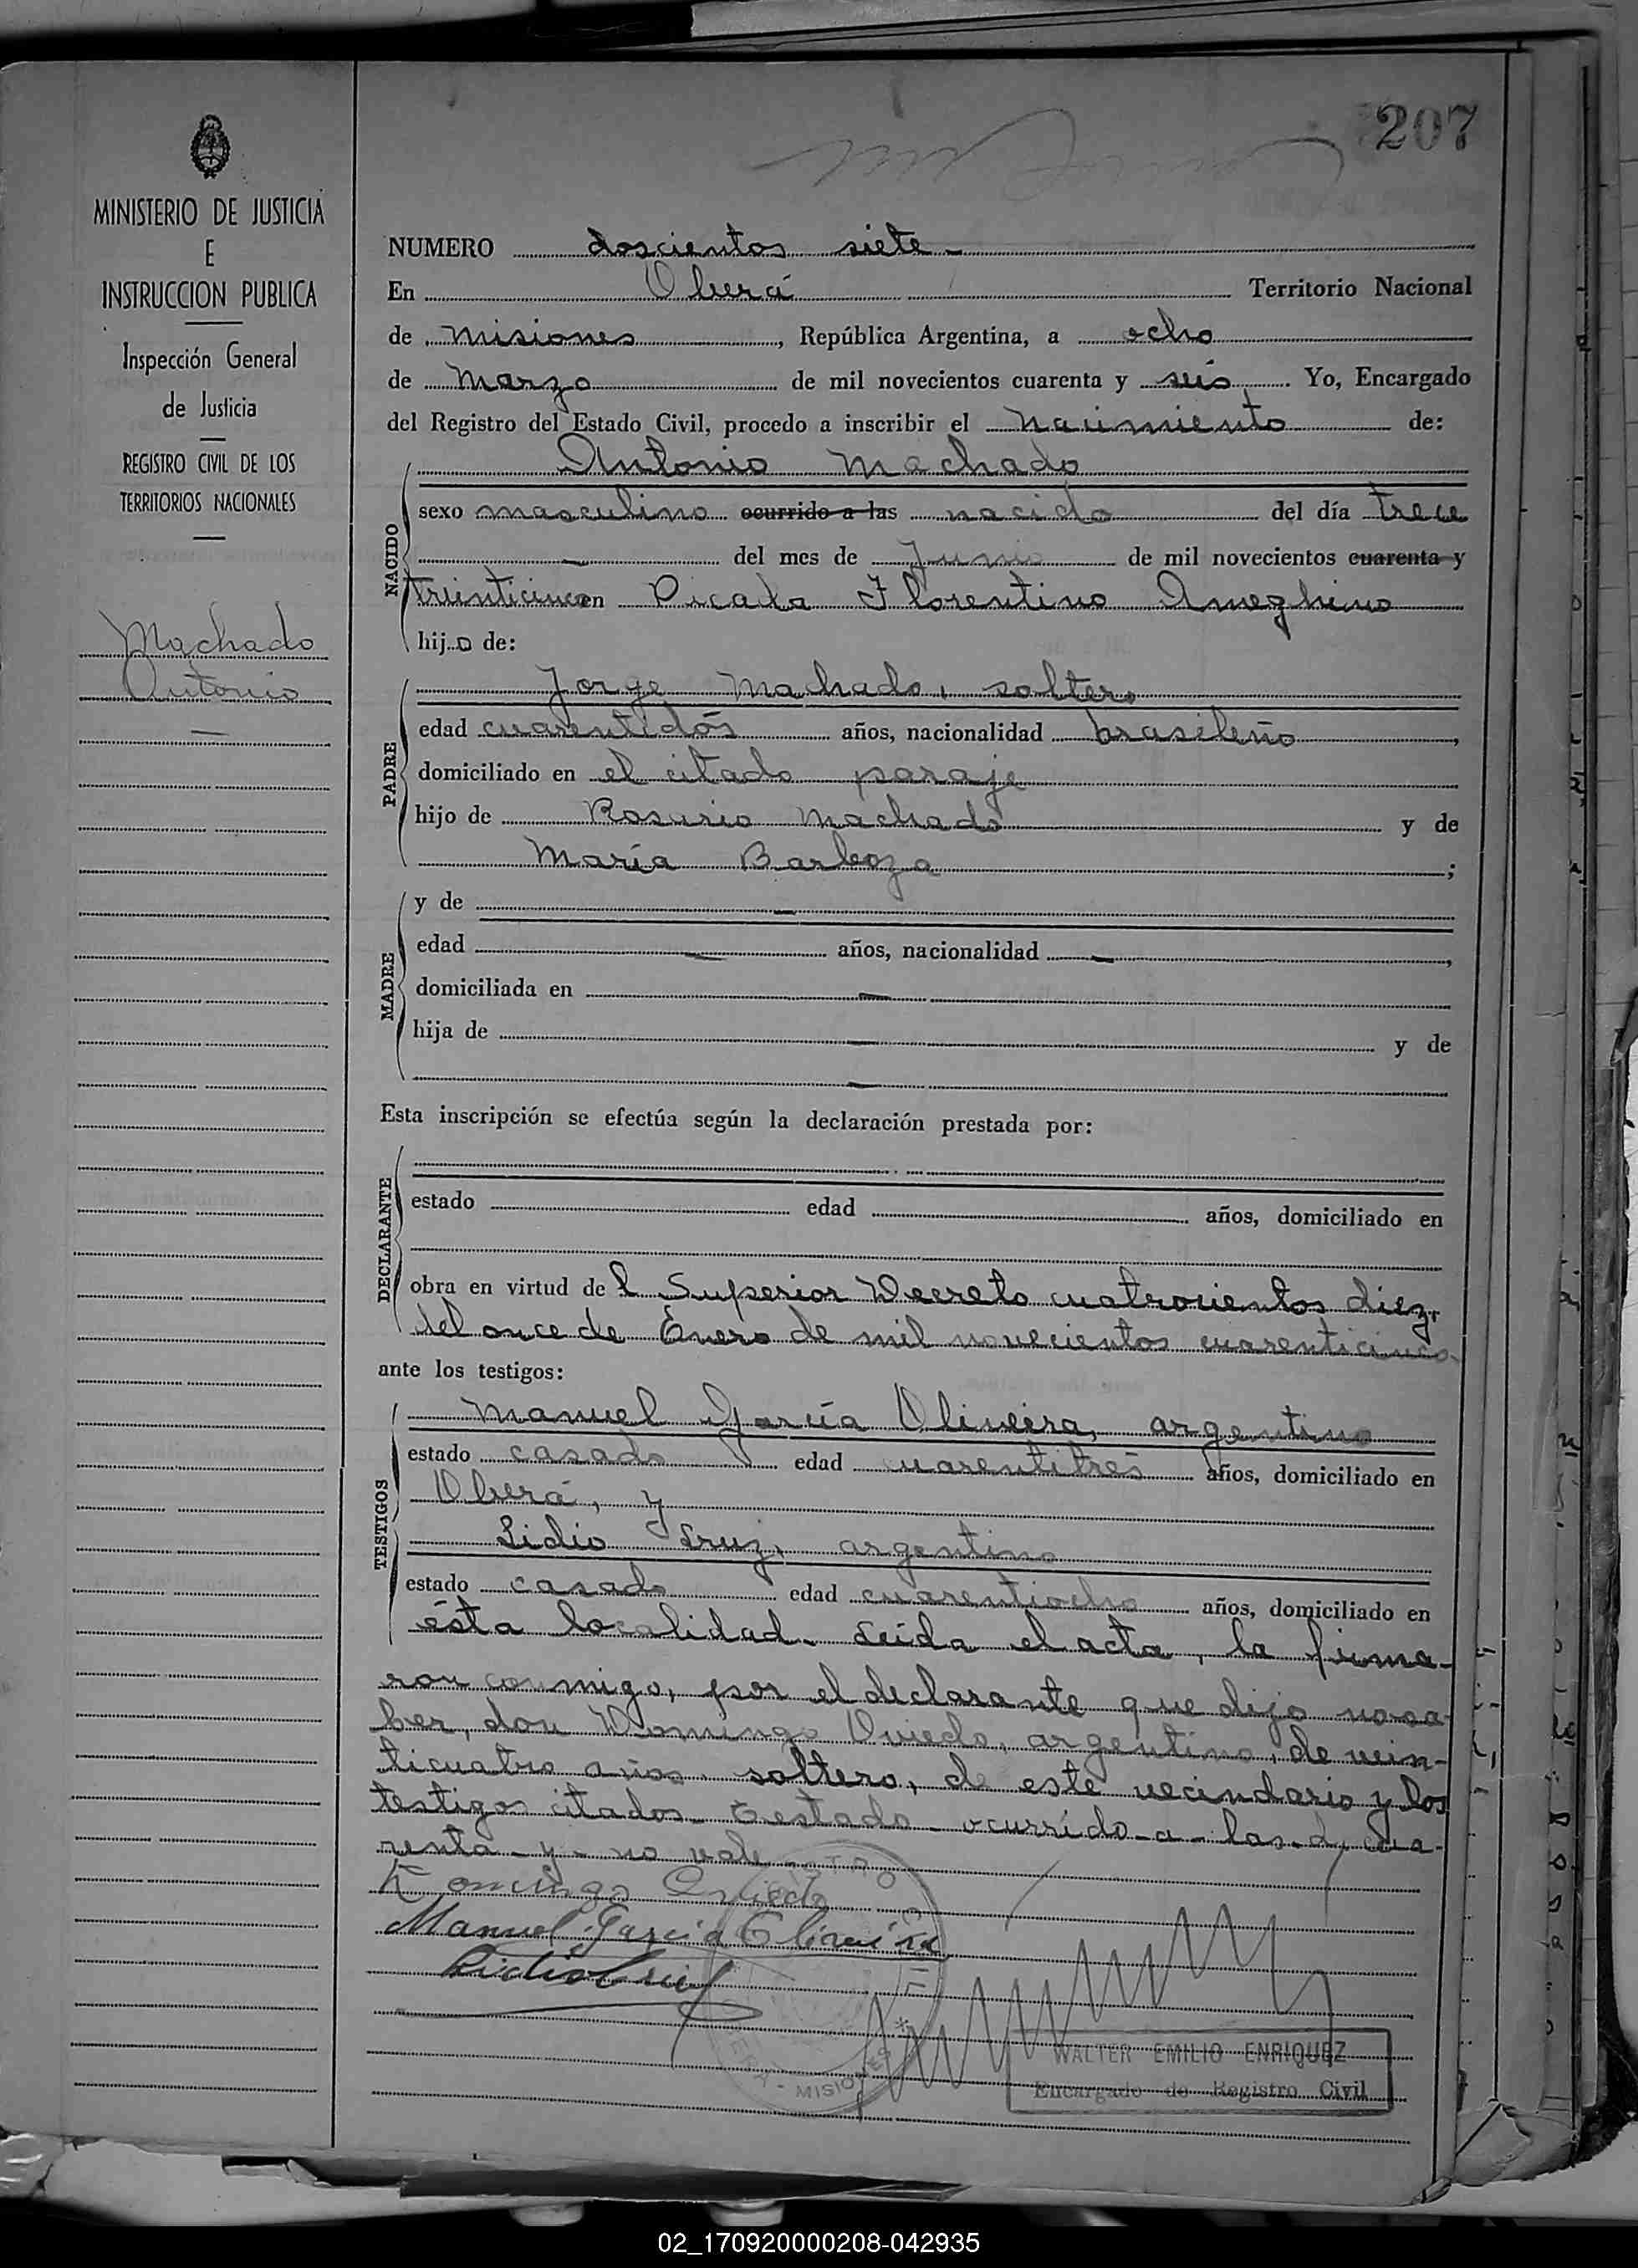 207
MINISTERIO DE JUSTICIA
E
INSTRUCCION PUBLICA
Inspección General
de Justicia
REGISTRO CIVIL DE LOS
TERRITORIOS NACIONALES
Machado
Antonio
NUMERO doscientos siete
En Oberá Territorio Nacional
de Misiones, República Argentina, a ocho
de Marzo de mil novecientos cuarenta y seis. Yo, Encargado
del Registro del Estado Civil, procedo a inscribir el nacimiento de:
NACIDO
Antonio Machado
sexo masculino ocurrido a las nacido del día trece
del mes de Junio de mil novecientos cuarenta y
treinticinco en Picada Florentino Ameghino
hijo de:
PADRE
Jorge Machado, soltero
edad cuarentidós años, nacionalidad brasileño,
domiciliado en el citado paraje
hijo de Rosario Machado y de
María Barboza;
MADRE
y de
edad años, nacionalidad,
domiciliada en
hija de y de
Esta inscripción se efectúa según la declaración prestada por:
DECLARANTE
estado edad años, domiciliado en
obra en virtud del Superior Decreto cuatrocientos diez,
del once de Enero de mil novecientos cuarenticinco.
ante los testigos:
TESTIGOS
Manuel García Oliveira, argentino
estado casado edad cuarentitrés años, domiciliado en
Oberá, y
Lidio Cruz, argentino
estado casado edad cuarentiocho años, domiciliado en
ésta localidad. Leída el acta, la firma-
ron conmigo, por el declarante que dijo no sa-
ber, don Domingo Oviedo, argentino, de vein-
ticuatro años, soltero, de este vecindario y los
testigos citados. Testado - ocurrido - a - las - cua-
renta - y - no vale
Domingo Oviedo
Manuel García Oliveira
Lidio Cruz
MISIONES
WALTER EMILIO ENRIQUEZ
Encargado de Registro Civil
02_170920000208-042935